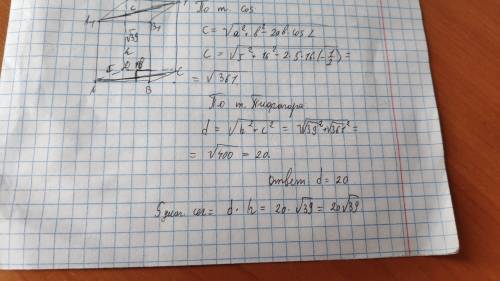 По т. cos
c = √a² + b² - 2ab · cos L
c = √5² + 16² - 2 · 5 · 16 · (-1/2) =
= √361
По т. Пифагора
d = √h² + c² = √√39² + √361² =
= √400 = 20.
ответ d = 20
S диаг. сеч = d · h = 20 · √39 = 20√39
c
√39
A
B
C